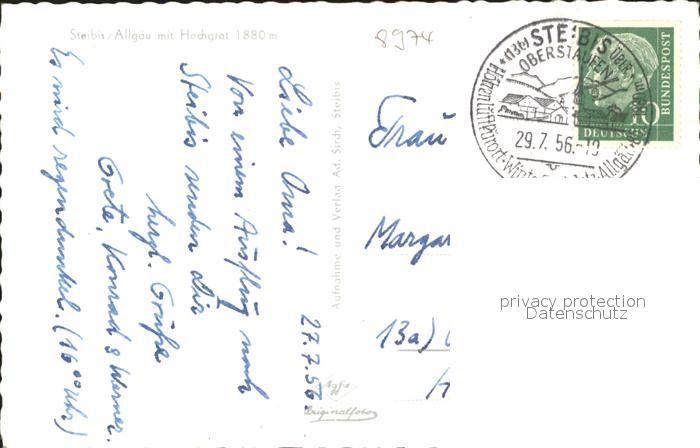 Steibis/Allgäu mit Hochgrat 1880 m
8974
27.7.56.
Liebe Oma!
Von einem Ausflug nach
Steibis senden Dir
herzl. Grüße
Grete, Konrad & Werner.
Es wird regendunkel. (16⁰⁰ Uhr)
Aufnahme und Verlag Ad. Sirch, Steibis
Agfa
Originalfoto
Frau
Margar
13a)
(13b) STEIBIS ÜBER
OBERSTAUFEN
Höhenluftkurort
29.7.56.-10
10
DEUTSCHE
BUNDESPOST
privacy protection
Datenschutz